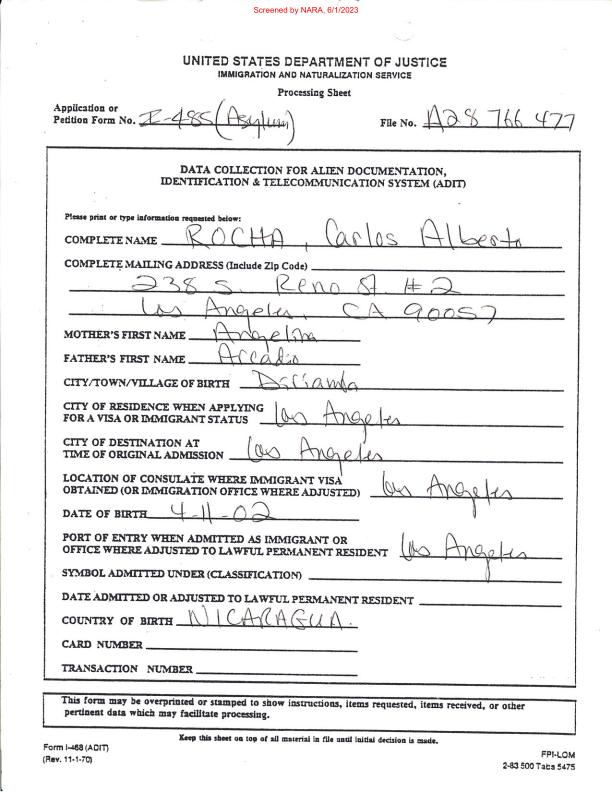 Screened by NARA, 6/1/2023
UNITED STATES DEPARTMENT OF JUSTICE
IMMIGRATION AND NATURALIZATION SERVICE
Processing Sheet
Application or
Petition Form No. I-485 (Asylum)
File No. A28 766 477
DATA COLLECTION FOR ALIEN DOCUMENTATION,
IDENTIFICATION & TELECOMMUNICATION SYSTEM (ADIT)
Please print or type information requested below:
COMPLETE NAME ROCHA, Carlos Alberto
COMPLETE MAILING ADDRESS (Include Zip Code)
238 S. Reno St #2
Los Angeles, CA 90057
MOTHER'S FIRST NAME Angelina
FATHER'S FIRST NAME Arcadio
CITY/TOWN/VILLAGE OF BIRTH Diriamba
CITY OF RESIDENCE WHEN APPLYING
FOR A VISA OR IMMIGRANT STATUS Los Angeles
CITY OF DESTINATION AT
TIME OF ORIGINAL ADMISSION Los Angeles
LOCATION OF CONSULATE WHERE IMMIGRANT VISA
OBTAINED (OR IMMIGRATION OFFICE WHERE ADJUSTED) Los Angeles
DATE OF BIRTH 4-11-02
PORT OF ENTRY WHEN ADMITTED AS IMMIGRANT OR
OFFICE WHERE ADJUSTED TO LAWFUL PERMANENT RESIDENT Los Angeles
SYMBOL ADMITTED UNDER (CLASSIFICATION)
DATE ADMITTED OR ADJUSTED TO LAWFUL PERMANENT RESIDENT
COUNTRY OF BIRTH NICARAGUA.
CARD NUMBER
TRANSACTION NUMBER
This form may be overprinted or stamped to show instructions, items requested, items received, or other
pertinent data which may facilitate processing.
Keep this sheet on top of all material in file until initial decision is made.
Form I-468 (ADIT)
(Rev. 11-1-70)
FPI-LOM
2-83 500 Tabs 5475